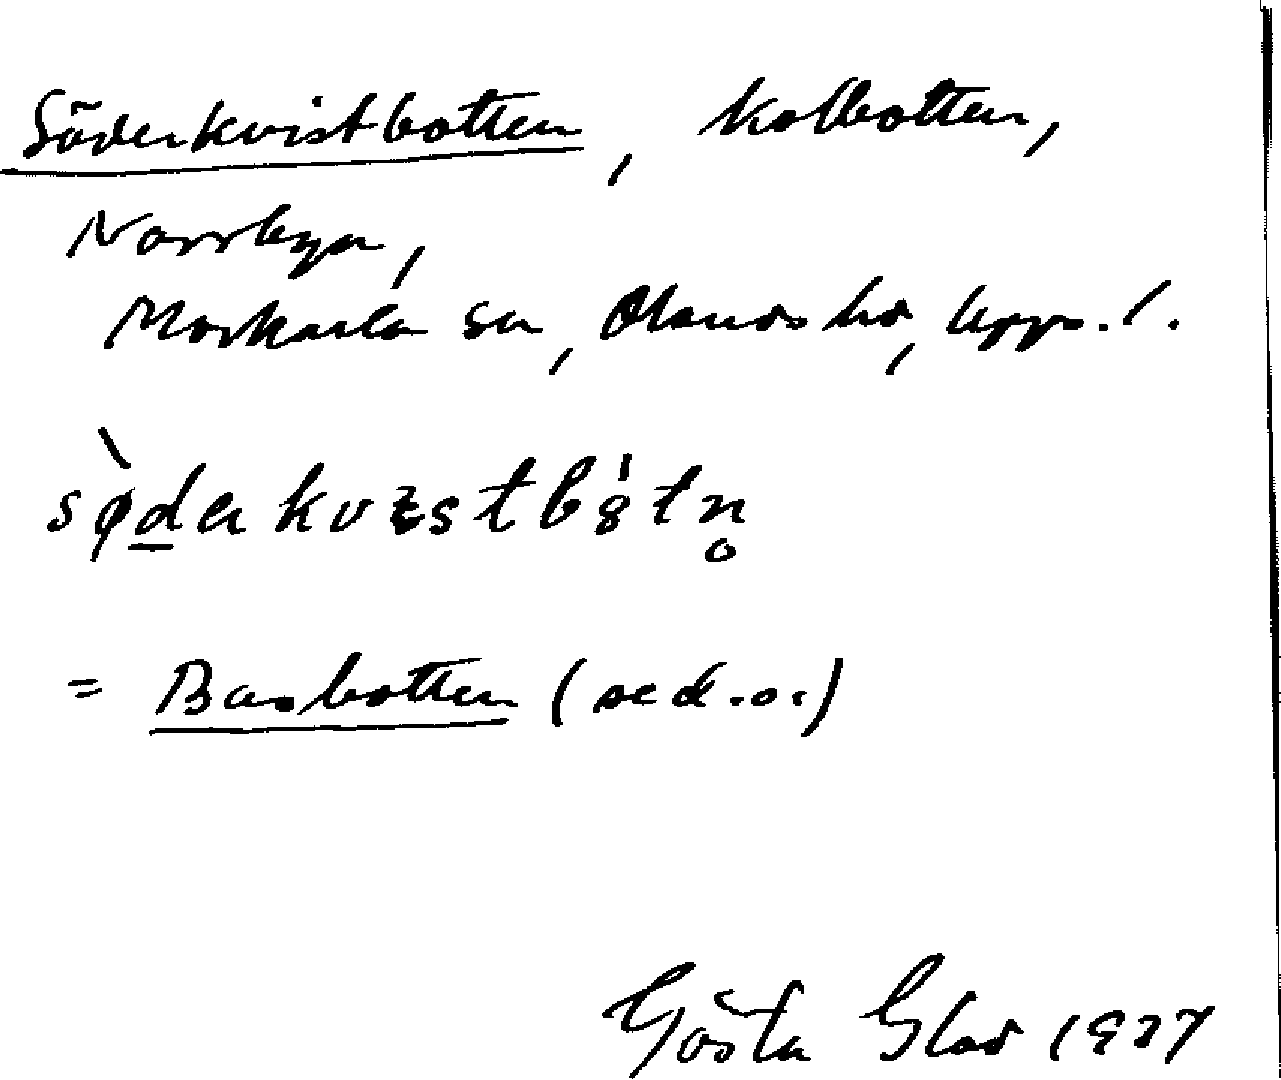 Söderkvistbotten, kolbotten,
Norrbyn,
Morkarla sn, Olands hd, Upps. l.
= Basbotten (se d. o.)
Gösta Glad 1937